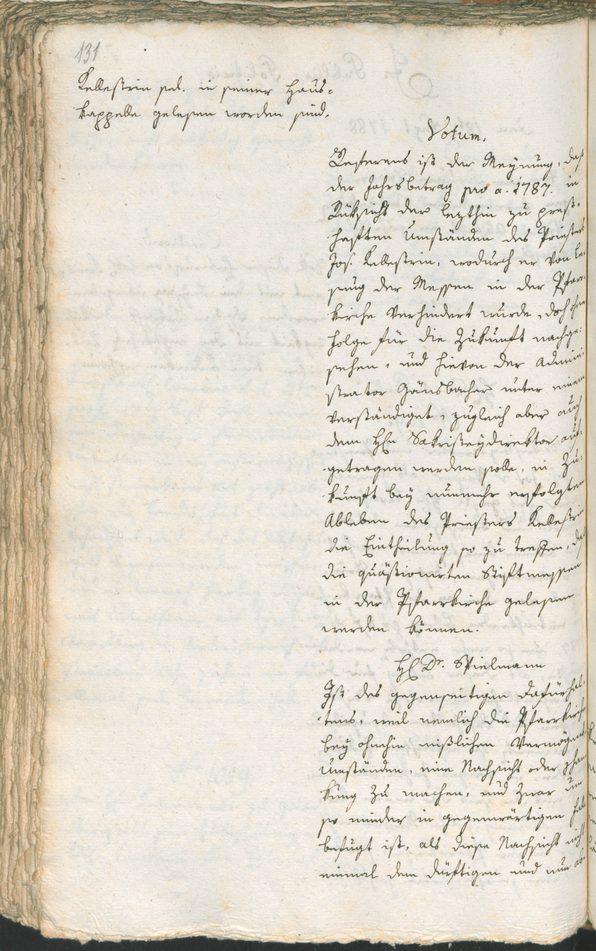 131
Kellestrin sel. in seiner Haus-
kappelle gelesen worden sind.
Votum.
Referens ist der Meynung, daß
der Jahrsbetrag pro a: 1787. in
Rüksicht der lezthin zu prest-
haften Umständen des Priesters
Jos. Kellestrin, wodurch er von Le-
sung der Messen in der Pfarr-
kirche verhindert wurde, doch ohne
Folge für die Zukunft nachge-
sehen, und hievon der Admini-
strator Gänsbacher unter einem
verständiget, zugleich aber auch
dem Hħ Sakristeydirektor auf-
getragen werden solle, in Zu-
kunft bey nunmehr erfolgten
Ableben des Priesters Kellestrin
die Eintheilung so zu treffen, daß
die quästionirten Stiftmessen
in der Pfarrkirche gelesen
werden können.
H. Dr. Spielmann
Ist des gegenseitigen Dafürhal-
tens, weil nemlich die Pfarrkirche
bey ohnehin mißlichen Vermögens
Umständen, eine Nachsicht oder Schan-
kung zu machen, und zwar um
so minder in gegenwärtigen Fall
befugt ist, als diese Nachsicht nicht
einmal dem dürftigen und nun